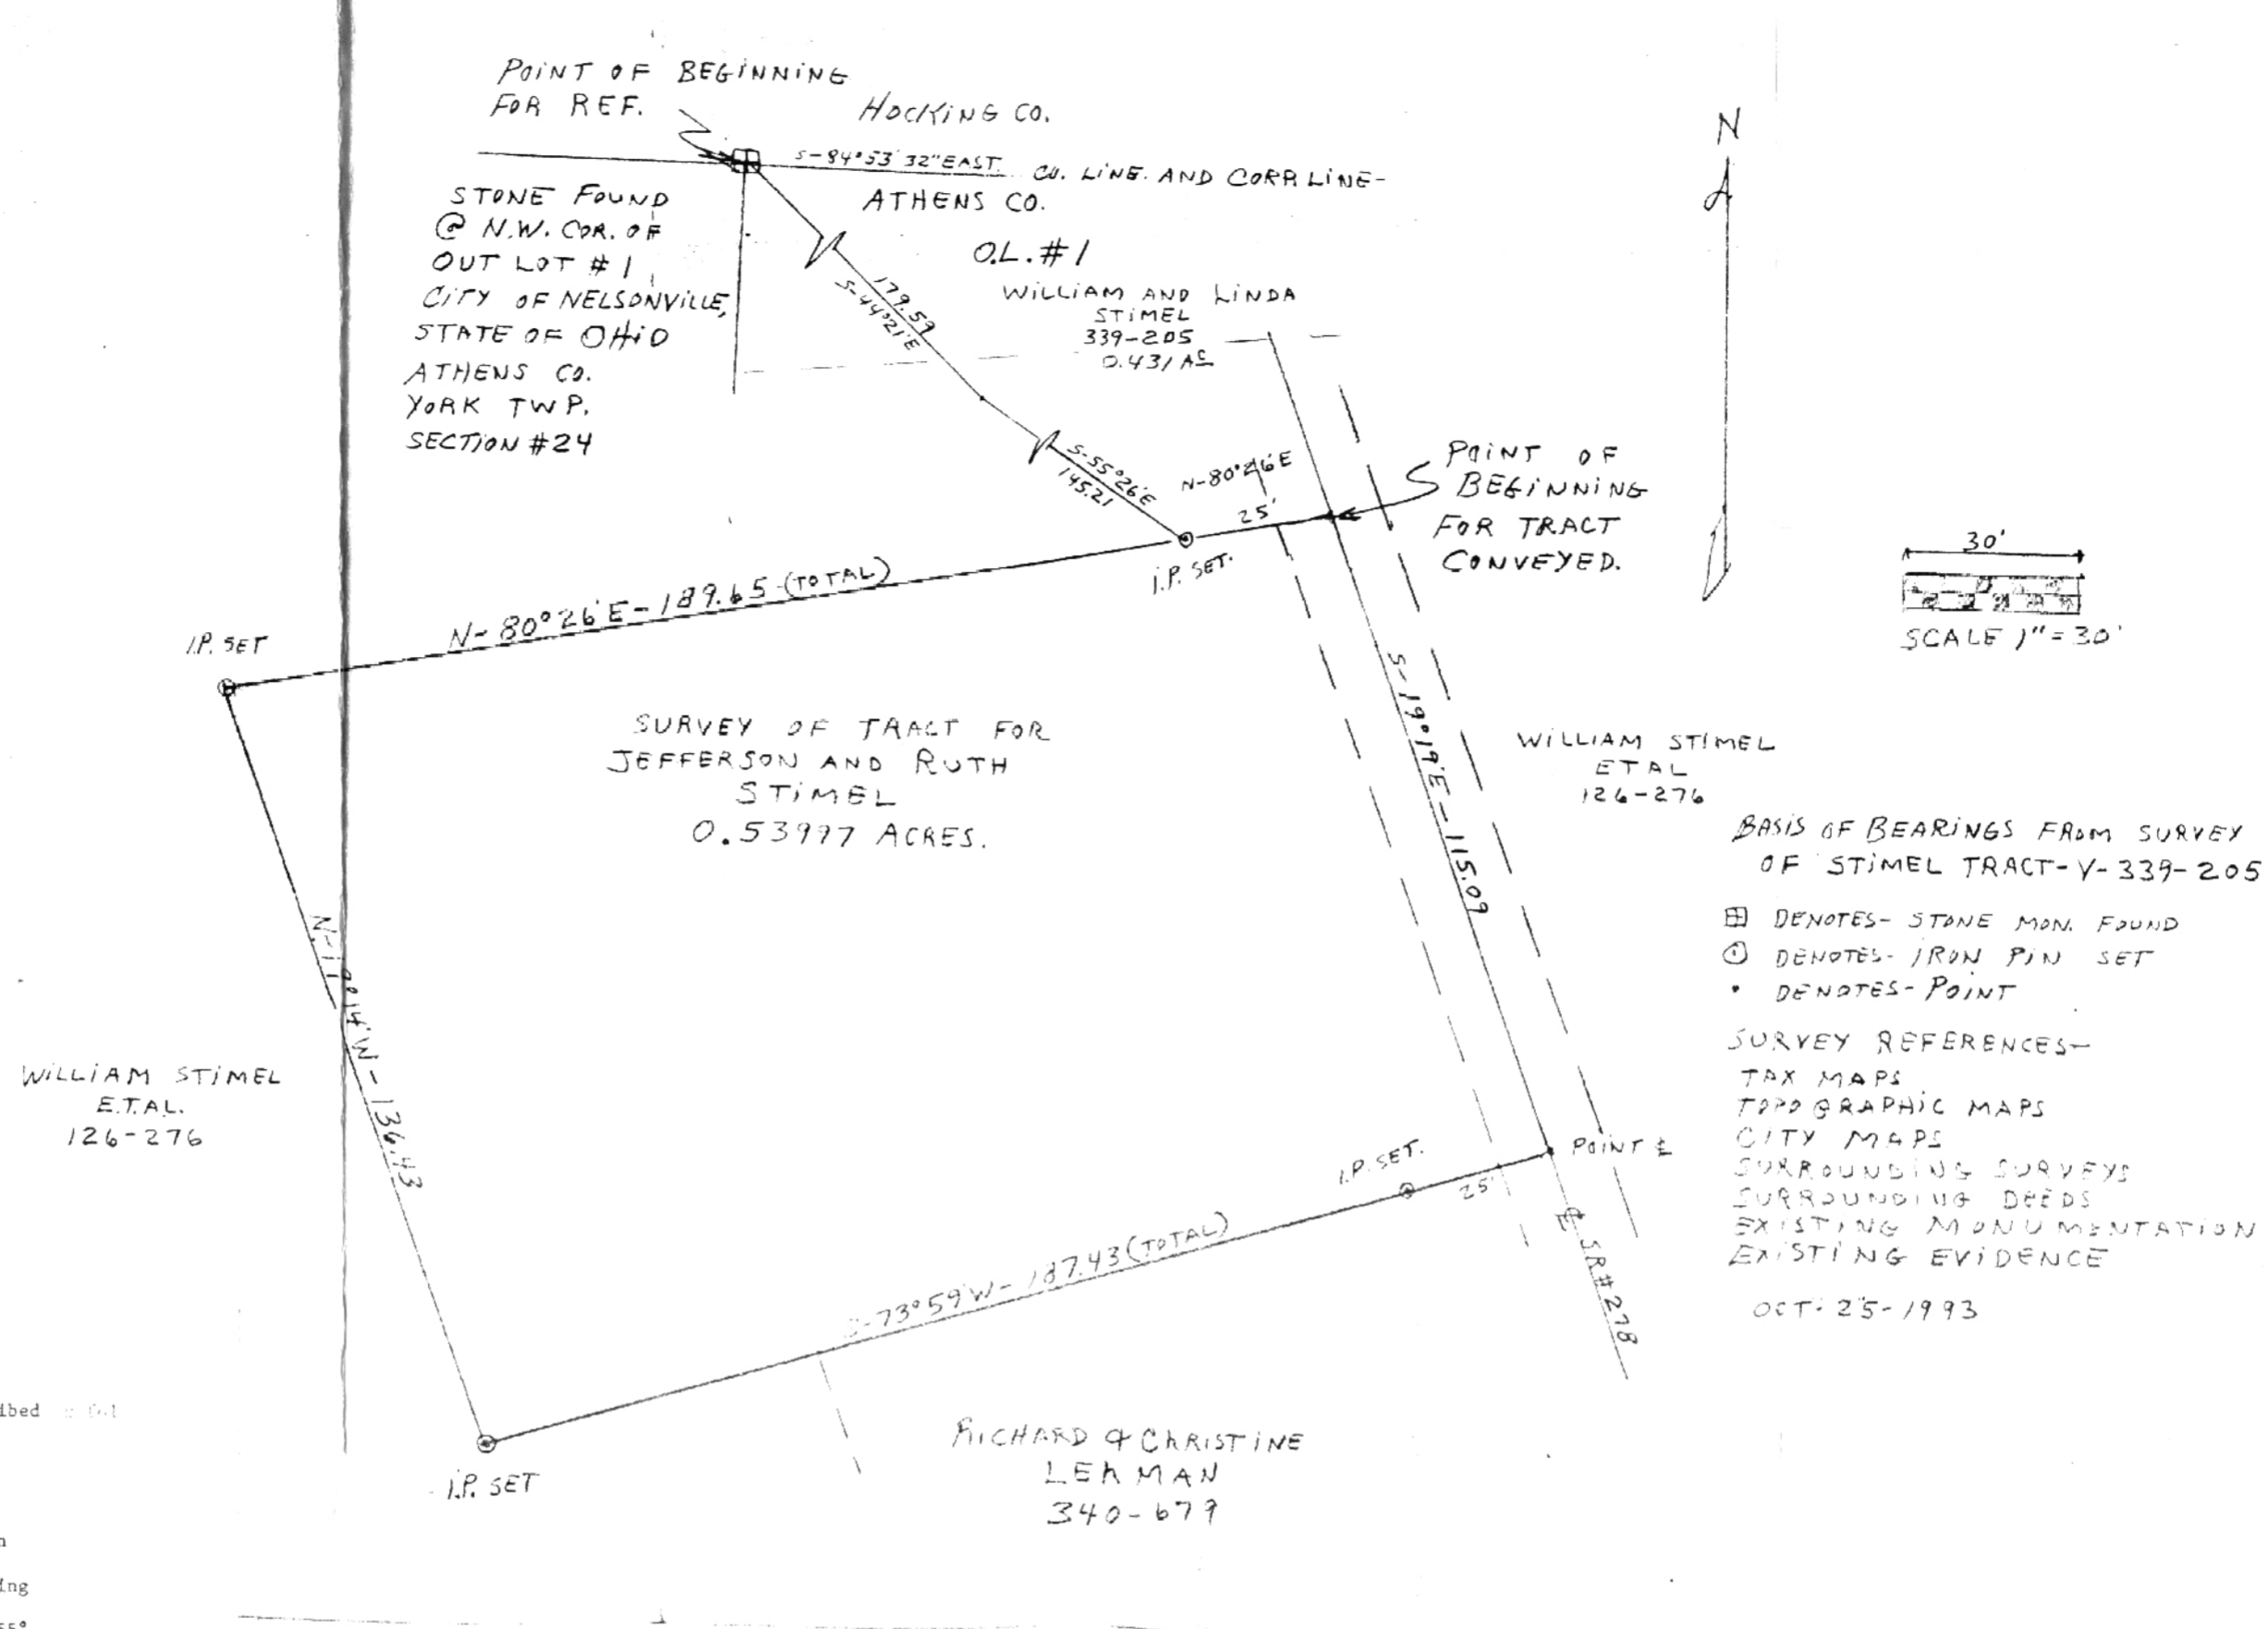 POINT OF BEGINNING
FOR REF.
HOCKING CO.
S-84°53'32" EAST.
CO. LINE. AND CORR LINE-
ATHENS CO.
STONE FOUND
@ N.W. COR. OF
OUT LOT #1
CITY OF NELSONVILLE,
STATE OF OHIO
ATHENS CO.
YORK TWP.
SECTION #24
O.L. #1
WILLIAM AND LINDA
STIMEL
339-205
0.431 AC
179.59
S-44°21'E
S-55°26'E
145.21
N-80°26'E
25'
I.P. SET.
POINT OF
BEGINNING
FOR TRACT
CONVEYED.
N
30'
SCALE 1"=30'
N-80°26'E-189.65-(TOTAL)
I.P. SET
SURVEY OF TRACT FOR
JEFFERSON AND RUTH
STIMEL
0.53997 ACRES.
S-19°19'E-115.09
WILLIAM STIMEL
ETAL
126-276
BASIS OF BEARINGS FROM SURVEY
OF STIMEL TRACT-V-339-205
DENOTES- STONE MON. FOUND
DENOTES- IRON PIN SET
DENOTES- POINT
SURVEY REFERENCES-
TAX MAPS
TOPOGRAPHIC MAPS
CITY MAPS
SURROUNDING SURVEYS
SURROUNDING DEEDS
EXISTING MONUMENTATION
EXISTING EVIDENCE
OCT. 25-1993
W-136.43
WILLIAM STIMEL
E.T.AL.
126-276
I.P. SET.
25'
POINT ℄
℄ SR#278
S-73°59'W-187.43(TOTAL)
I.P. SET
RICHARD & CHRISTINE
LEHMAN
340-679
ibed
n
ing
55°